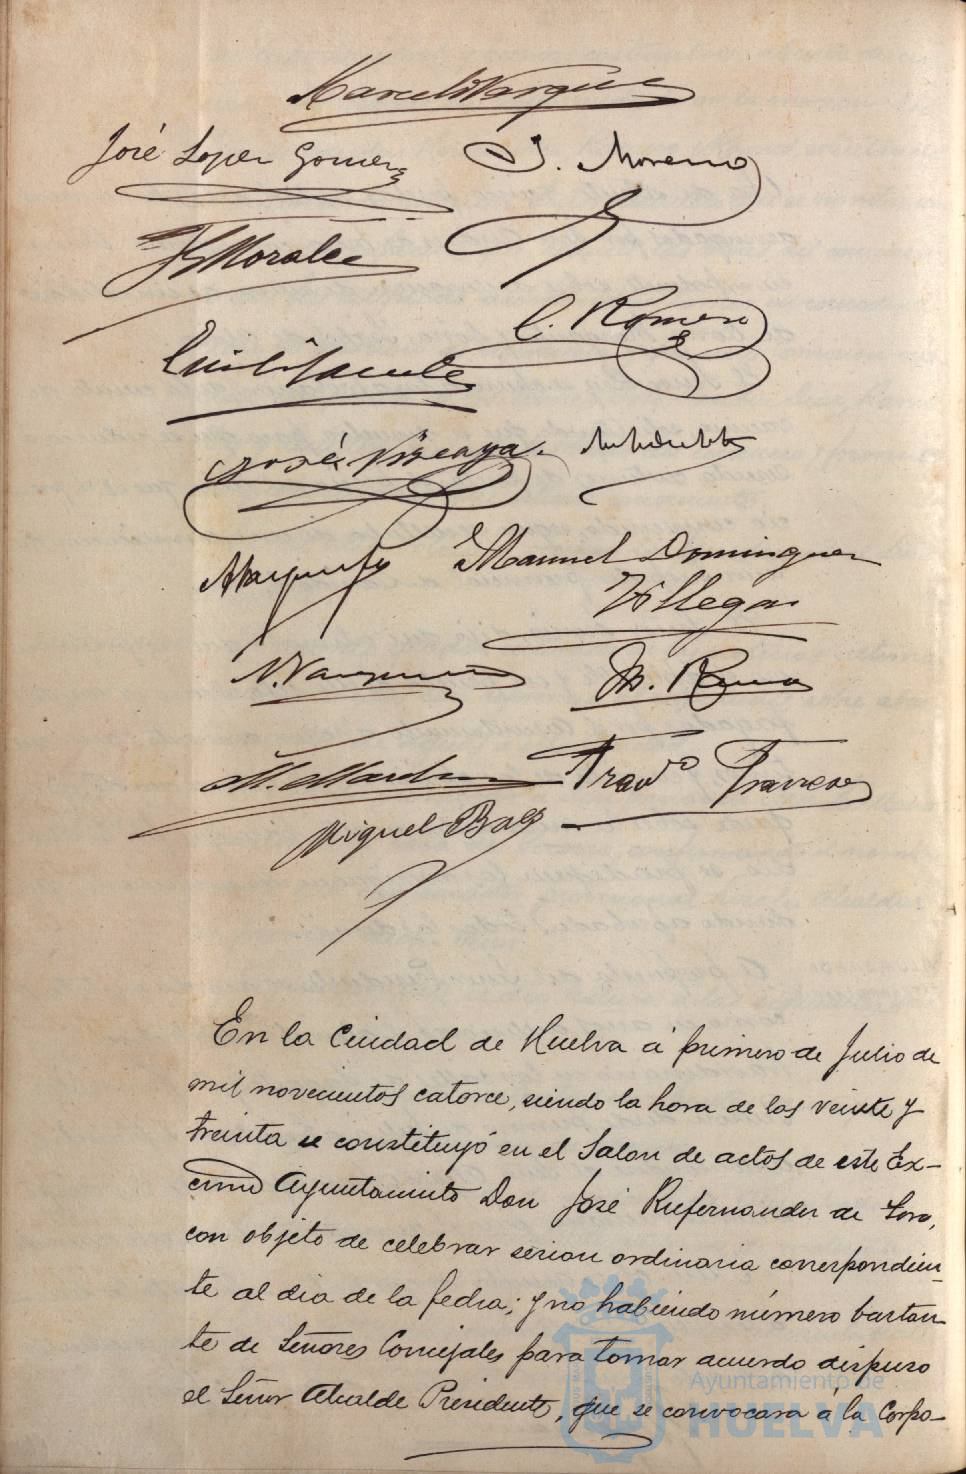 Marcelo Vazquez
José Lopez Gomez J. Moreno
Morales
C. Romero
José Vizcaya.
Manuel Dominguez
Villegas
N. Vazquez M. Romero
M. Martin
Miguel Baez
En la Ciudad de Huelva á primero de Julio de
mil novecientos catorce, siendo la hora de las veinte y
treinta se constituyó en el Salon de actos de este Ex-
cmo Ayuntamiento Don José de
con objeto de celebrar sesion ordinaria correspondien-
te al dia de la fecha; y no habiendo número bastan-
te de Señores Concejales para tomar acuerdo dispuso
el Señor Alcalde Presidente, que se convocara á la Corpo-
Ayuntamiento de
HUELVA